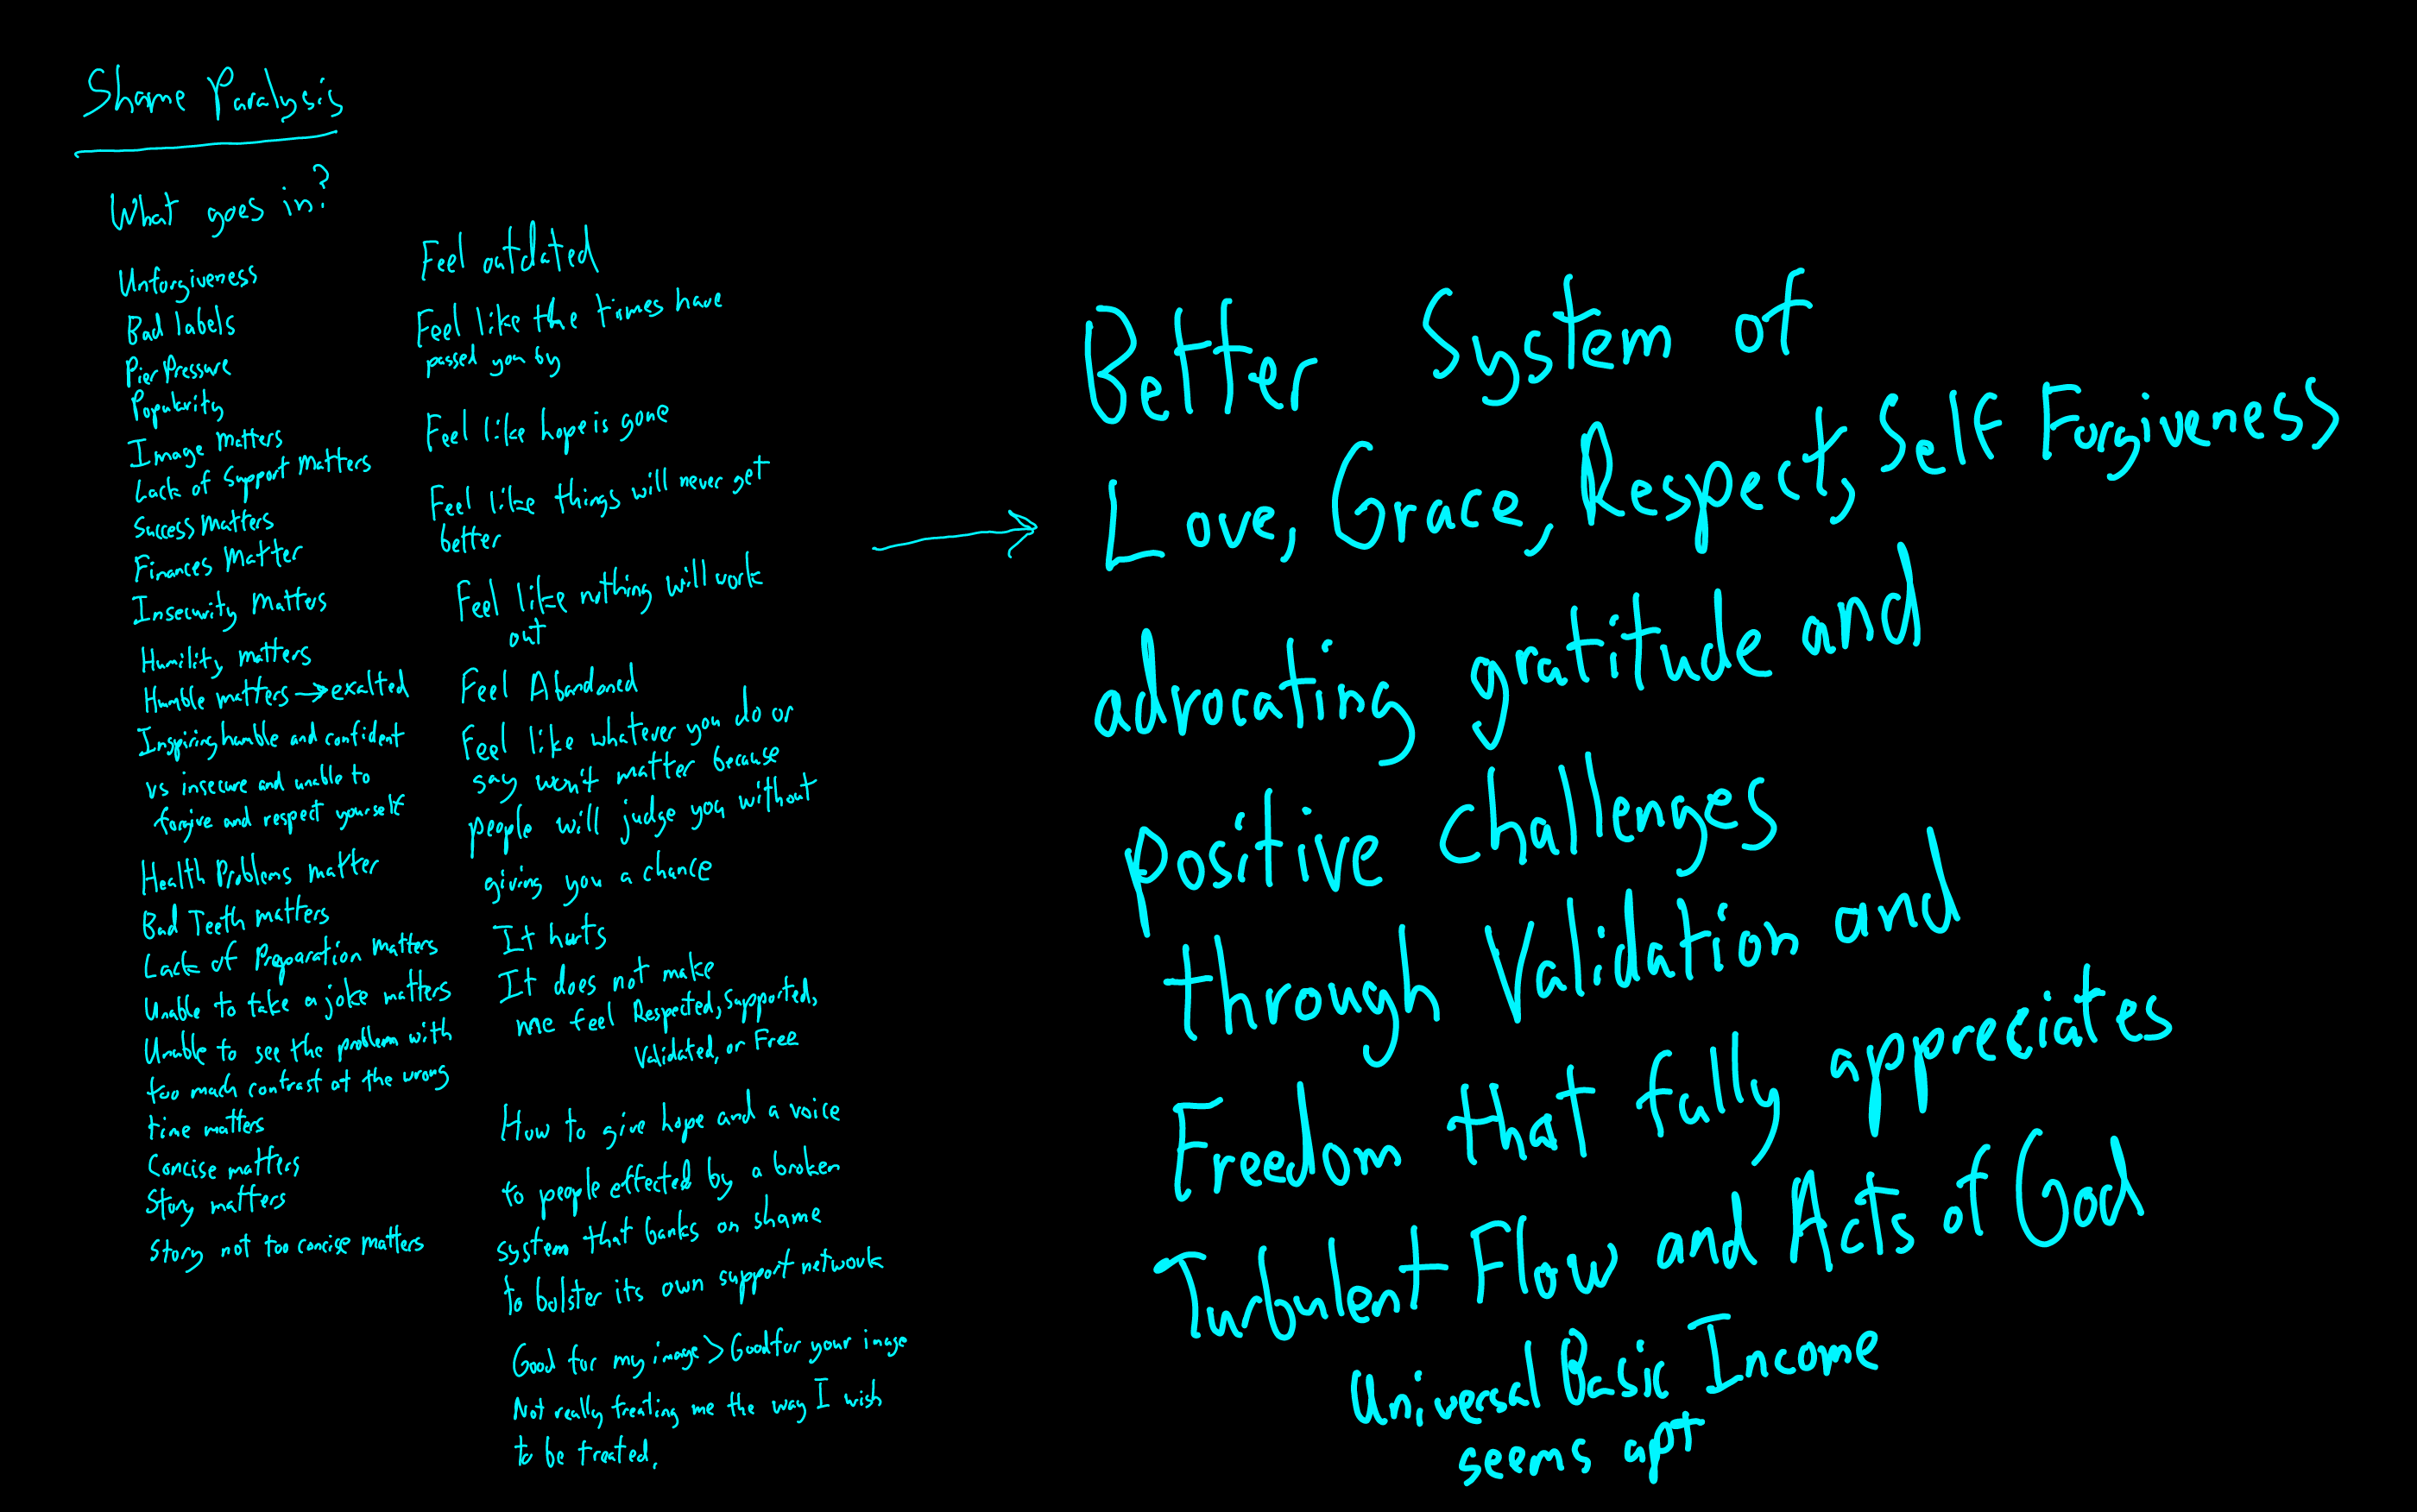 Shame Paralysis
What goes in?
Unforgiveness
Bad labels
Pier Pressure
Popularity
Image matters
Lack of Support Matters
Success Matters
Finances Matter
Insecurity Matters
Humility matters
Humble matters → exalted
Inspiring humble and confident
vs insecure and unable to
forgive and respect yourself
Health Problems matter
Bad Teeth matters
Lack of Preparation matters
Unable to take a joke matters
Unable to see the problem with
too much contrast at the wrong
time matters
Concise matters
Story matters
Story not too concise matters
Feel outdated
Feel like the times have
passed you by
Feel like hope is gone
Feel like things will never get
better
Feel like nothing will work
out
Feel Abandoned
Feel like whatever you do or
say won't matter because
people will judge you without
giving you a chance
It hurts
It does not make
me feel Respected, Supported,
Validated, or Free
How to give hope and a voice
to people effected by a broken
system that banks on shame
to bolster its own support network
Good for my image > Good for your image
Not really treating me the way I wish
to be treated.
→
Better System of
Love, Grace, Respect, Self Forgiveness
advocating gratitude and
positive challenges
through Validation and
Freedom that fully appreciates
Turbulent Flow and Acts of God
Universal Basic Income
seems apt